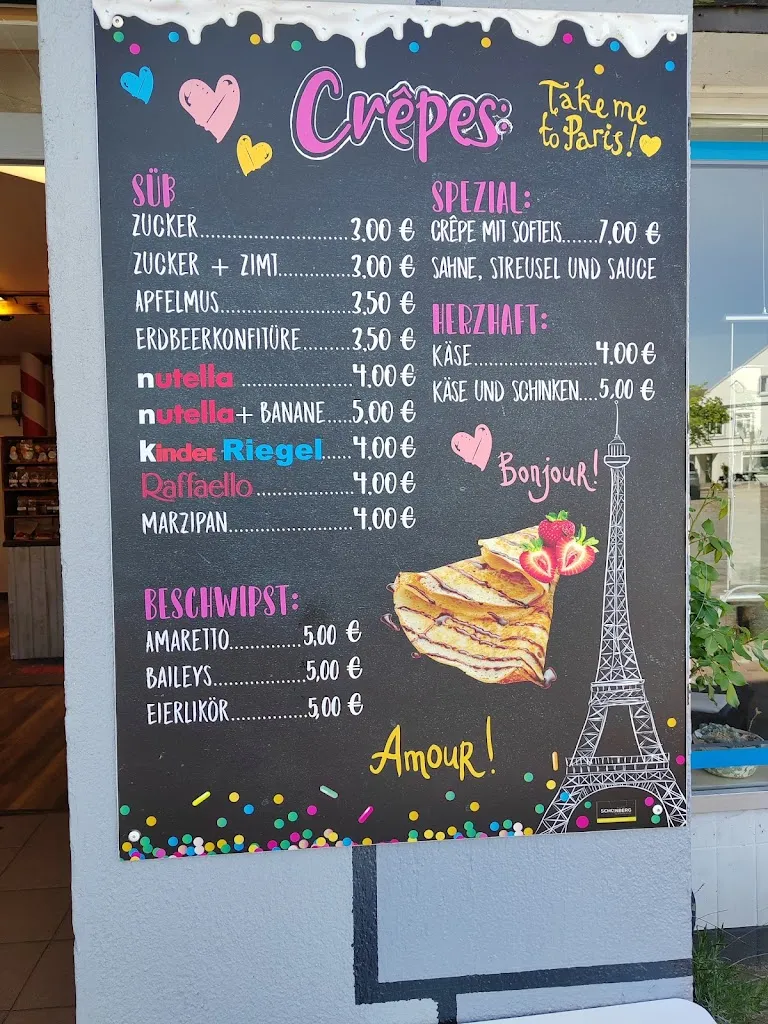 Crêpes:
Take me
to Paris!
SÜß
ZUCKER 3,00 €
ZUCKER + ZIMT 3,00 €
APFELMUS 3,50 €
ERDBEERKONFITÜRE 3,50 €
nutella 4,00 €
nutella + BANANE 5,00 €
kinder Riegel 4,00 €
Raffaello 4,00 €
MARZIPAN 4,00 €
BESCHWIPST:
AMARETTO 5,00 €
BAILEYS 5,00 €
EIERLIKÖR 5,00 €
SPEZIAL:
CRÊPE MIT SOFTEIS 7,00 €
SAHNE, STREUSEL UND SAUCE
HERZHAFT:
KÄSE 4,00 €
KÄSE UND SCHINKEN 5,00 €
Bonjour!
Amour!